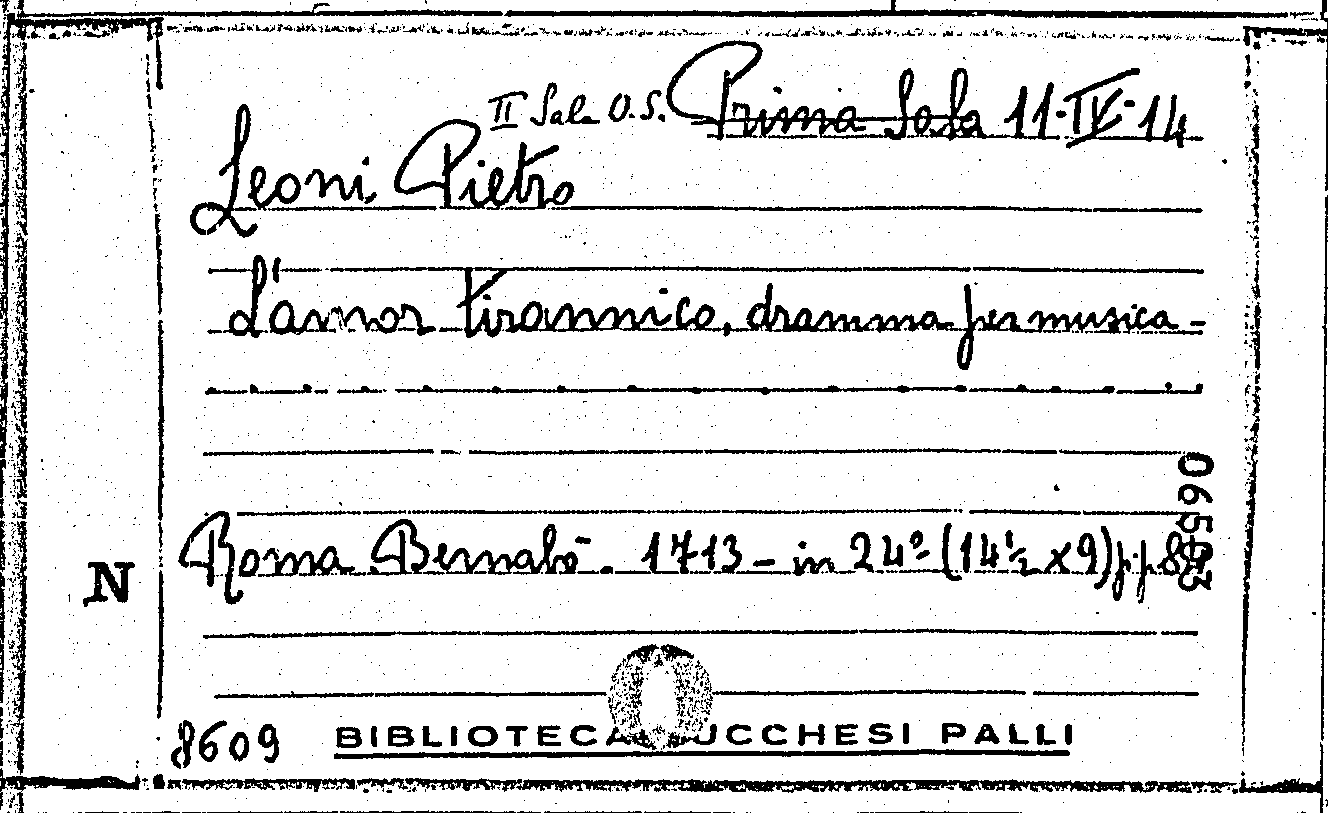 II Sala O.S. Prima Sala 11-IV-14
Leoni Pietro
L'amor tirannico, dramma per musica -
Roma Bernabò - 1713 - in 24º (14½ x 9) pp.
N
8609 BIBLIOTECA LUCCHESI PALLI